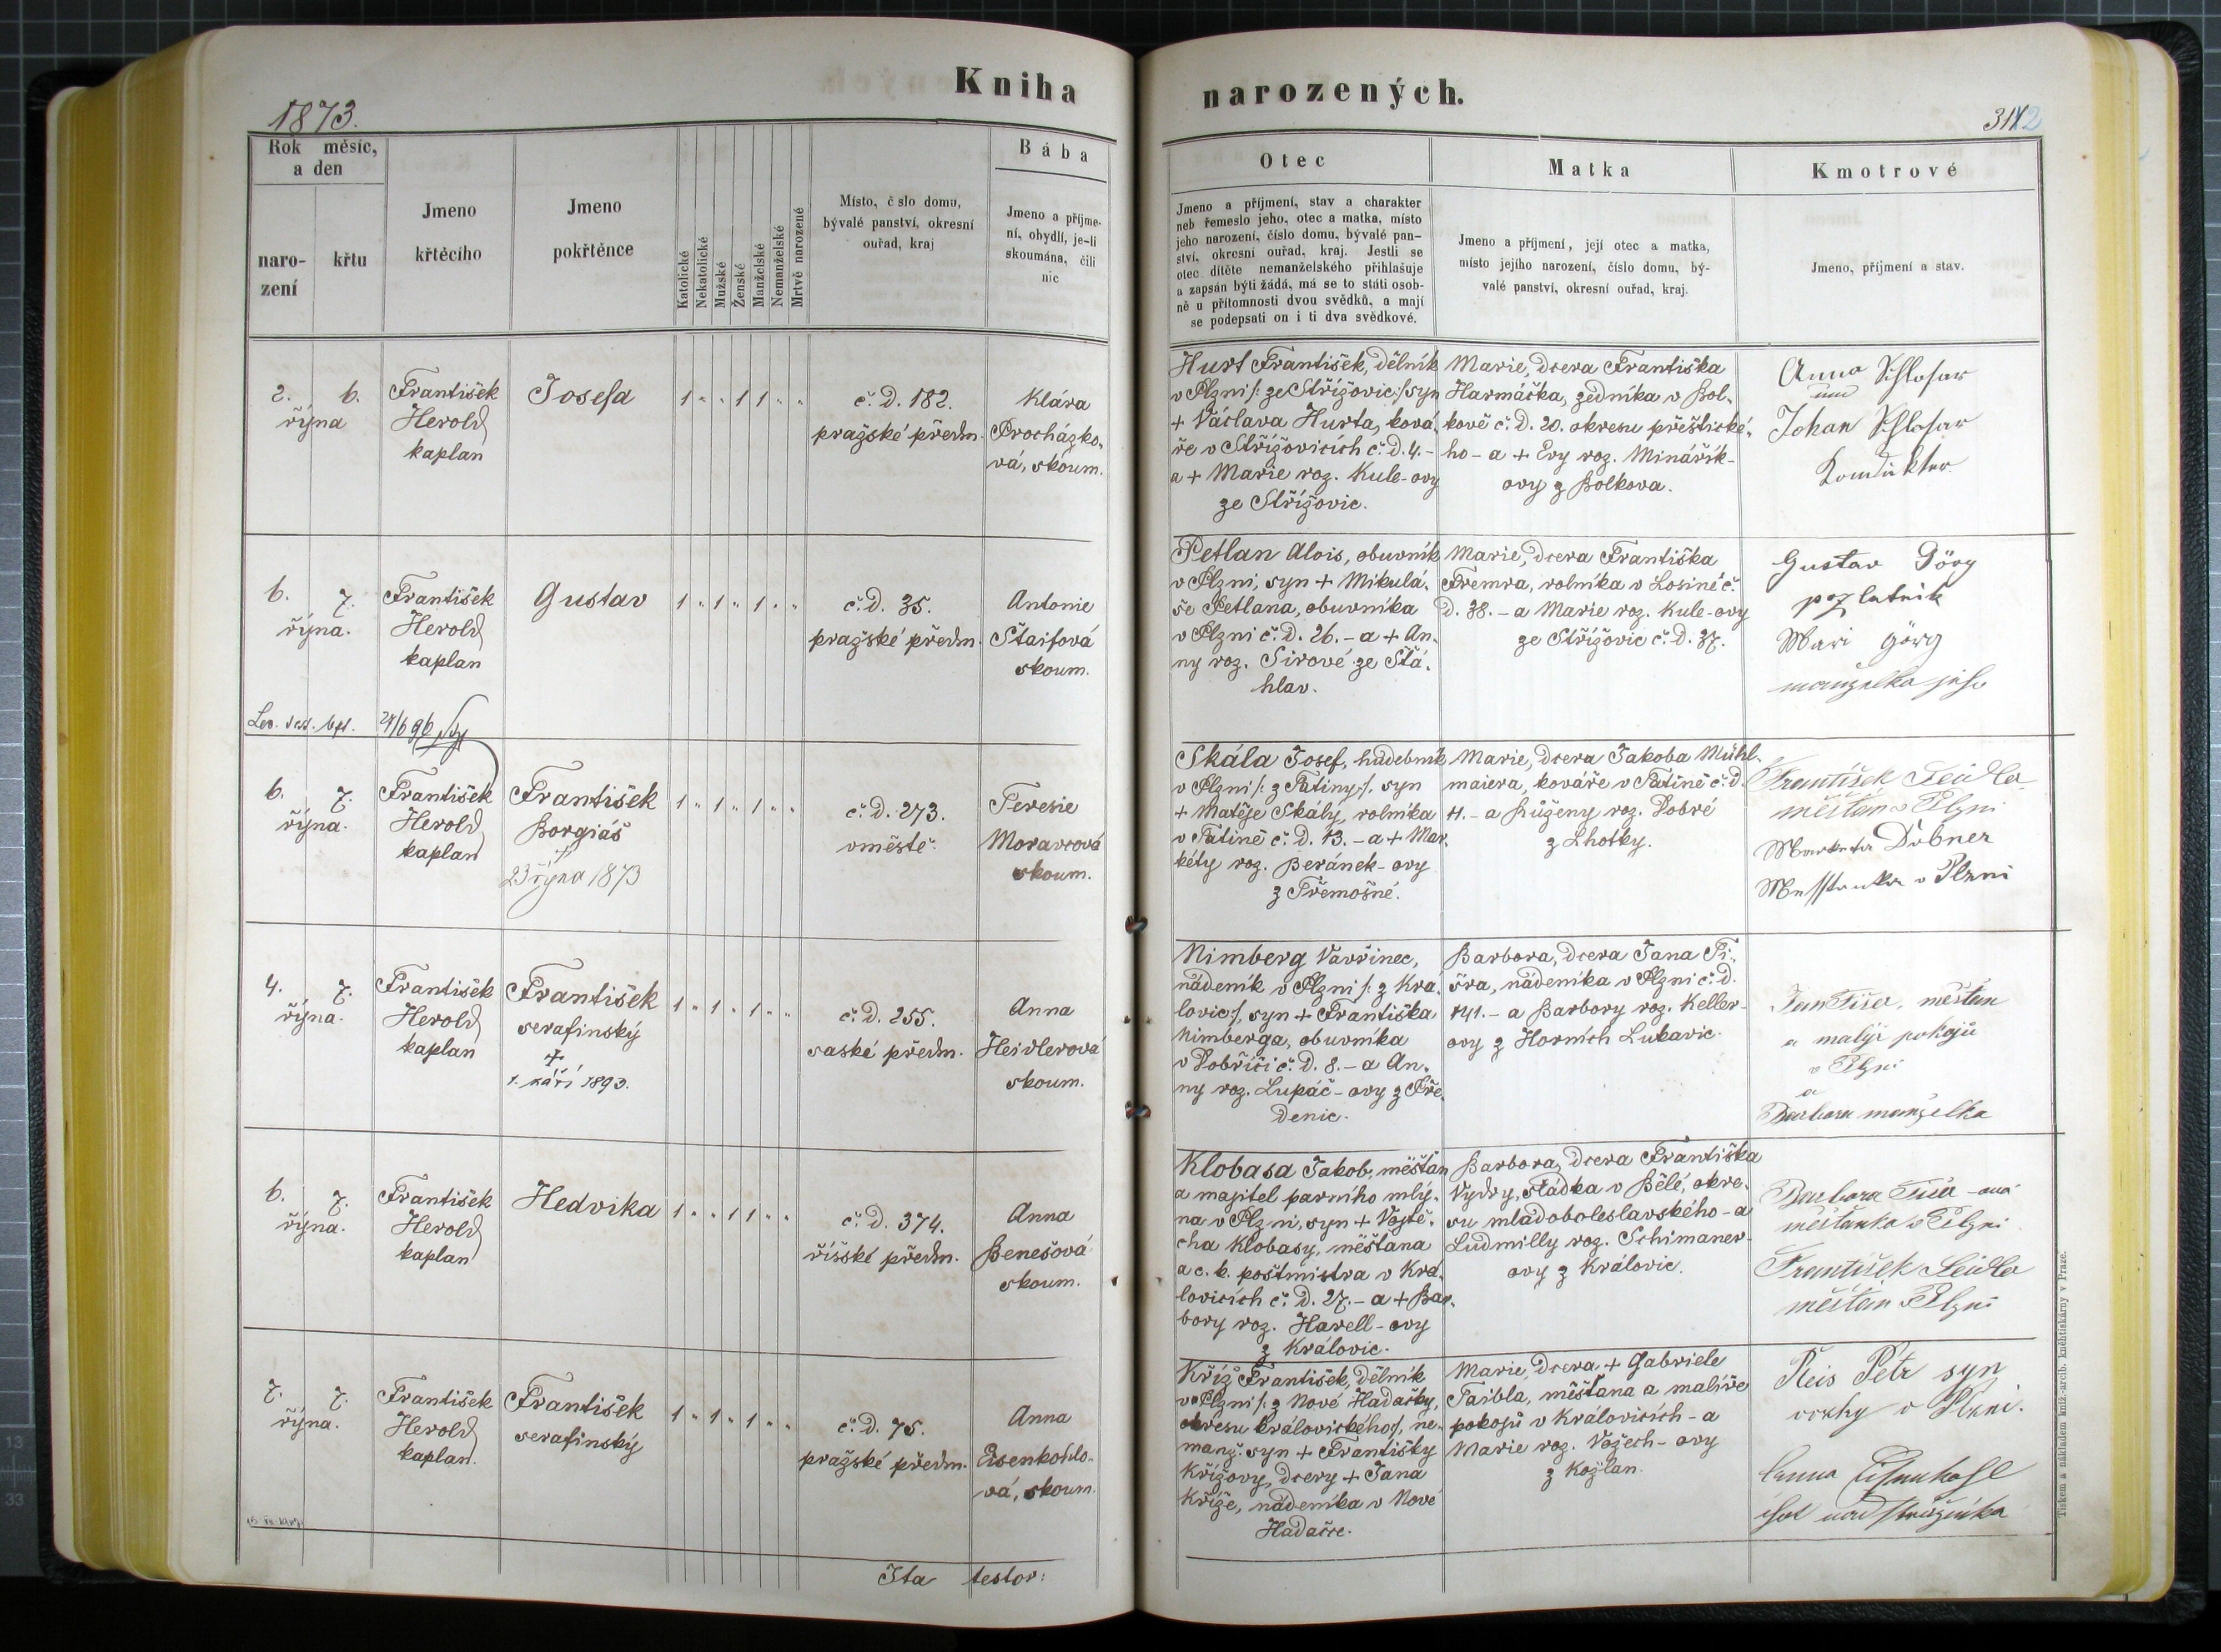 Kniha
1873.
Rok měsíc,
a den
naro-
zení
křtu
Jmeno
křtěcího
Jmeno
pokřtěnce
Katolické
Nekatolické
Mužské
Ženské
Manželské
Nemanželské
Mrtvě narozené
Místo, č slo domu,
bývalé panství, okresní
ouřad, kraj
Bába
Jmeno a příjme-
ní, obydlí, je-li
skoumána, čili
nic
2. 6.
října
František
Herold
kaplan
Josefa
1 " " 1 1 " "
č. d. 182.
pražské předm.
Klára
Procházko-
vá, skoum.
6. 7.
října.
František
Herold
kaplan
Gustav
1 " 1 " 1 " "
č. d. 35.
pražské předm.
Antonie
Štaifová
skoum.
24/6 96
6. 7.
října.
František
Herold
kaplan
František
Borgiáš
+
23 října 1873
1 " 1 " 1 " "
č. d. 273.
v městě.
Terezie
Moravcová
skoum.
4. 7.
října.
František
Herold
kaplan
František
serafinský
+
1. září 1893.
1 " 1 " 1 " "
č. d. 255.
saské předm.
Anna
Heidlerová
skoum.
6. 7.
října.
František
Herold
kaplan
Hedvika
1 " " 1 1 " "
č. d. 374.
říšské předm.
Anna
Benešová
skoum.
7. 7.
října.
František
Herold
kaplan.
František
serafinský
1 " 1 " 1 " "
č. d. 75.
pražské předm.
Anna
Eisenkohlo-
vá, skoum.
Ita testor:
narozených.
Otec
Jmeno a příjmení, stav a charakter
neb řemeslo jeho, otec a matka, místo
jeho narození, číslo domu, bývalé pan-
ství, okresní ouřad, kraj. Jestli se
otec dítěte nemanželského přihlašuje
a zapsán býti žádá, má se to státi osob-
ně u přítomnosti dvou svědků, a mají
se podepsati on i ti dva svědkové.
Matka
Jmeno a příjmení, její otec a matka,
místo jejího narození, číslo domu, bý-
valé panství, okresní ouřad, kraj.
Kmotrové
Jmeno, příjmení a stav.
Hurt František, dělník
v Plzni /: ze Střížovic :/ syn
+ Václava Hurta, ková-
ře v Střížovicích č. d. 4. -
a + Marie roz. Kule-ovy
ze Střížovic.
Marie, dcera Františka
Harmáčka, zedníka v Bol-
kově č. d. 20. okresu přeštické-
ho - a + Evy roz. Minářík-
ovy z Bolkova.
Anna Schlosar
und
Johan Schlosar
Kondukter
Petlan Alois, obuvník
v Plzni, syn + Mikulá-
še Petlana, obuvníka
v Plzni č. d. 26. - a + An-
ny roz. Sirové ze Šťá-
hlav.
Marie, dcera Františka
Tremra, rolníka v Losiné č.
d. 38. - a Marie roz. Kule-ovy
ze Střížovic č. d. 37.
Gustav Görg
pozlatnik
Mari Görg
manzelka jeho
Skála Josef, hudebník
v Plzni /: z Tatiny :/ syn
+ Matěje Skály, rolníka
v Tatině č. d. 13. - a + Mar-
kéty roz. Beránek-ovy
z Třemošné.
Marie, dcera Jakoba Mühl-
maiera, kováře v Tatině č. d.
11. - a Růženy roz. Dobré
z Lhotky.
František Seidler
měštan v Plzni
Marketa Dobner
v Plzni
Nimberg Vavřinec,
nádeník v Plzni /: z Kra-
lovic :/, syn + Františka
Nimberga, obuvníka
v Dobříči č. d. 8. - a An-
ny roz. Lupáč-ovy z Pře-
denic.
Barbora, dcera Jana Ti-
šra, nádeníka v Plzni č. d.
141. - a Barbory roz. Keller-
ovy z Horních Lukavic.
Jan Tišer, měštan
a malíř pokojů
v Plzni
a
Barbara manželka
Klobasa Jakob, měšťan
a majitel parního mlý-
na v Plzni, syn + Vojtě-
cha Klobasy, měšťana
a c. k. poštmistra v Kra-
lovicích č. d. 27. - a + Bar-
bory roz. Havell-ovy
z Královic.
Barbora, dcera Františka
Vydry, sládka v Bělé, okre-
su mladoboleslavského - a
Ludmilly roz. Schimaner-
ovy z Královic.
měštanka v Plzni
František Seidler
měštan v Plzni
Kříž František, dělník
v Plzni /: z Nové Hadačky,
okresu královického :/, ne-
manž. syn + Františky
Křížovy, dcery + Jana
Kříže, nádeníka v Nové
Hadačce.
Marie, dcera + Gabriele
Taibla, měšťana a malíře
pokojů v Královicích - a
Marie roz. Vožech-ovy
z Kožlan.
Reis Petr syn
v Plzni.
Anna Eisenkohl
Tiskem a nákladem kníž.-arcib. knihtiskárny v Praze.